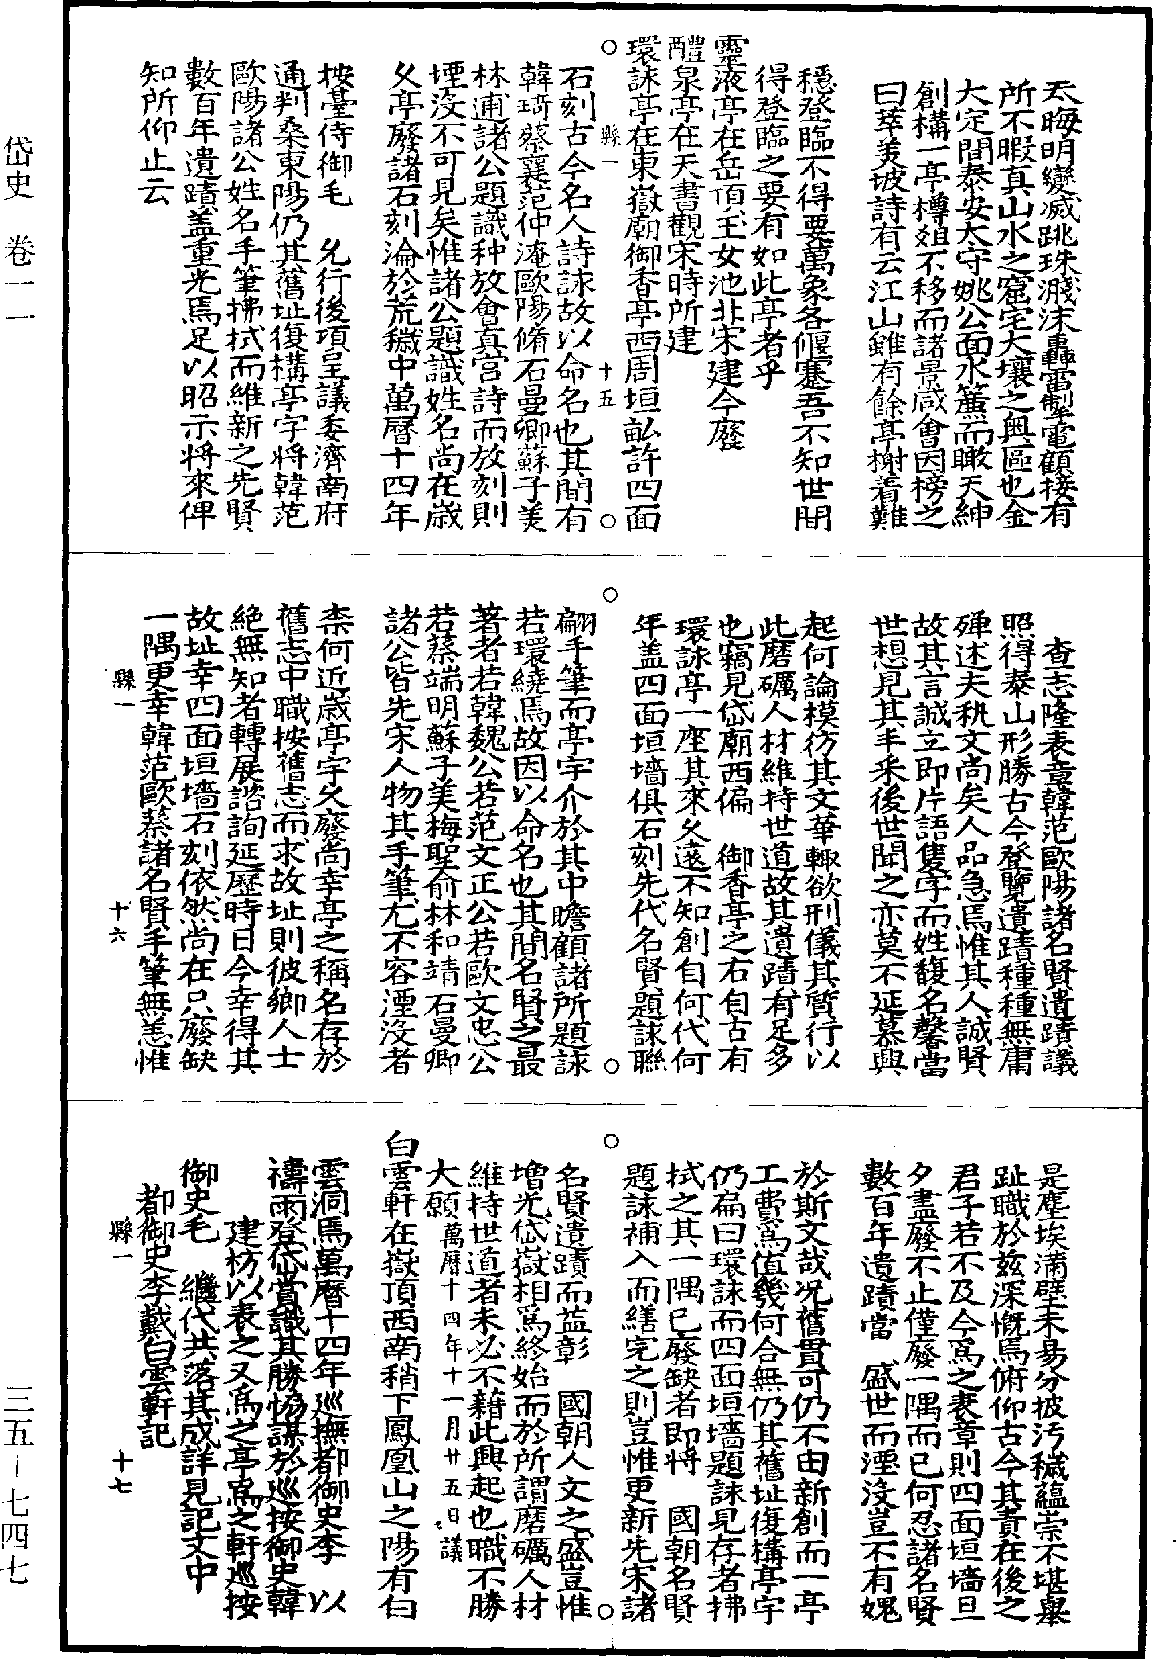 岱史 卷一一
三五-七四七
天晦明變滅跳珠濺沫轟雷掣電顧接有
所不暇真山水之窟宅天壤之奥區也金
大定間泰安太守姚公面水簾而瞰天紳
創構一亭樽俎不移而諸景咸會因榜之
曰萃美坡詩有云江山雖有餘亭榭着難
穩登臨不得要萬象各偃蹇吾不知世間
得登臨之要有如此亭者乎
靈液亭在岳頂玉女池北宋建今廢
醴泉亭在天書觀宋時所建
環詠亭在東嶽廟御香亭西周垣畝許四面
縣一 十五
石刻古今名人詩詠故以命名也其間有
韓琦蔡襄范仲淹歐陽脩石曼卿蘇子美
林逋諸公題識种放會真宫詩而放刻則
堙没不可見矣惟諸公題識姓名尚在歲
久亭廢諸石刻淪於荒穢中萬曆十四年
按臺侍御毛 允行後項呈議委濟南府
通判桑東陽仍其舊址復構亭宇將韓范
歐陽諸公姓名手筆拂拭而維新之先賢
數百年遺蹟盖重光焉足以昭示將來俾
知所仰止云
查志隆表章韓范歐陽諸名賢遺蹟議
照得泰山形勝古今登覽遺蹟種種無庸
殫述夫秇文尚矣人品急焉惟其人誠賢
故其言誠立即片語隻字而姓馥名馨當
世想見其丰采後世聞之亦莫不延慕興
起何論模彷其文華輙欲刑儀其質行以
此磨礪人材維持世道故其遺蹟有足多
也竊見岱廟西偏 御香亭之右自古有
環詠亭一座其來久遠不知創自何代何
年盖四面垣墻俱石刻先代名賢題詠聯
翩手筆而亭宇介於其中瞻顧諸所題詠
若環繞焉故因以命名也其間名賢之最
著者若韓魏公若范文正公若歐文忠公
若蔡端明蘇子美梅聖俞林和靖石曼卿
諸公皆先宋人物其手筆尤不容湮没者
柰何近歲亭宇久廢尚幸亭之稱名存於
舊志中職按舊志而求故址則彼鄉人士
絶無知者轉展諮詢延歷時日今幸得其
故址幸四面垣墻石刻依然尚在只廢缺
一隅更幸韓范歐蔡諸名賢手筆無恙惟
縣一 十六
是塵埃滿壁未易分披汚穢藴崇不堪舉
趾職於兹深慨焉俯仰古今其責在後之
君子若不及今爲之表章則四面垣墻旦
夕盡廢不止僅廢一隅而已何忍諸名賢
數百年遺蹟當 盛世而湮没豈不有媿
於斯文哉况舊貫可仍不由新創而一亭
工費爲值幾何合無仍其舊址復構亭宇
仍扁曰環詠而四面垣墻題詠見存者拂
拭之其一隅已廢缺者即將 國朝名賢
題詠補入而繕完之則豈惟更新先宋諸
名賢遺蹟而益彰 國朝人文之盛豈惟
增光岱嶽相爲終始而於所謂磨礪人材
維持世道者未必不藉此興起也職不勝
大願萬曆十四年十一月廿五日議
白雲軒在嶽頂西南稍下鳳凰山之陽有白
雲洞焉萬曆十四年巡撫都御史李 以
禱雨登岱賞識其勝恊謀於巡按御史韓
建枋以表之又爲之亭爲之軒巡按
御史毛 繼代共落其成詳見記文中
都御史李戴白雲軒記
縣一 十七